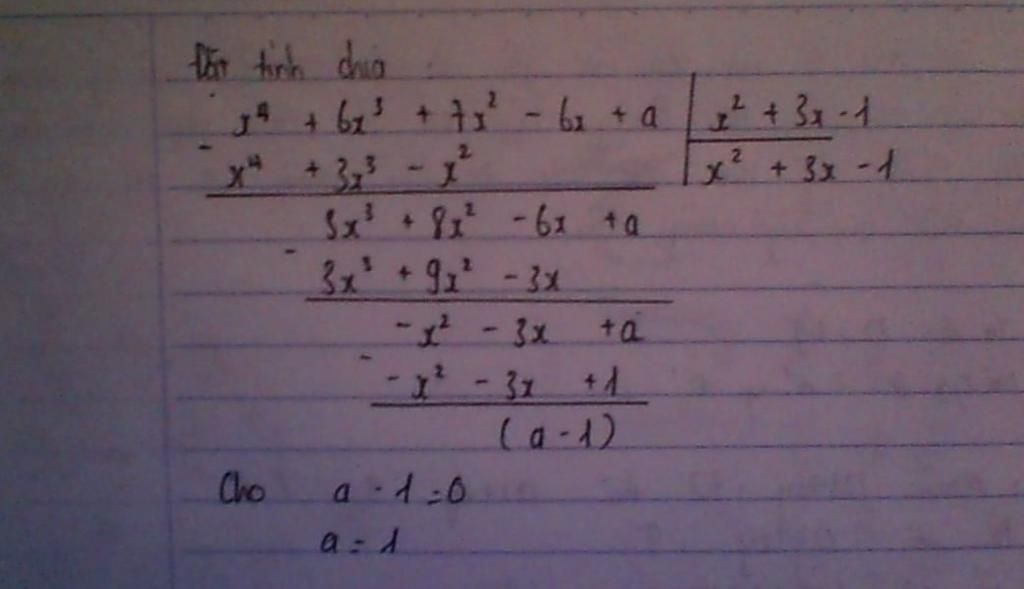 Đặt tính chia :
x⁴ + 6x³ + 7x² - 6x + a | x² + 3x - 1
- x⁴ + 3x³ - x² | x² + 3x - 1
3x³ + 8x² - 6x + a
- 3x³ + 9x² - 3x
- x² - 3x + a
- - x² - 3x + 1
(a - 1)
Cho a - 1 = 0
a = 1